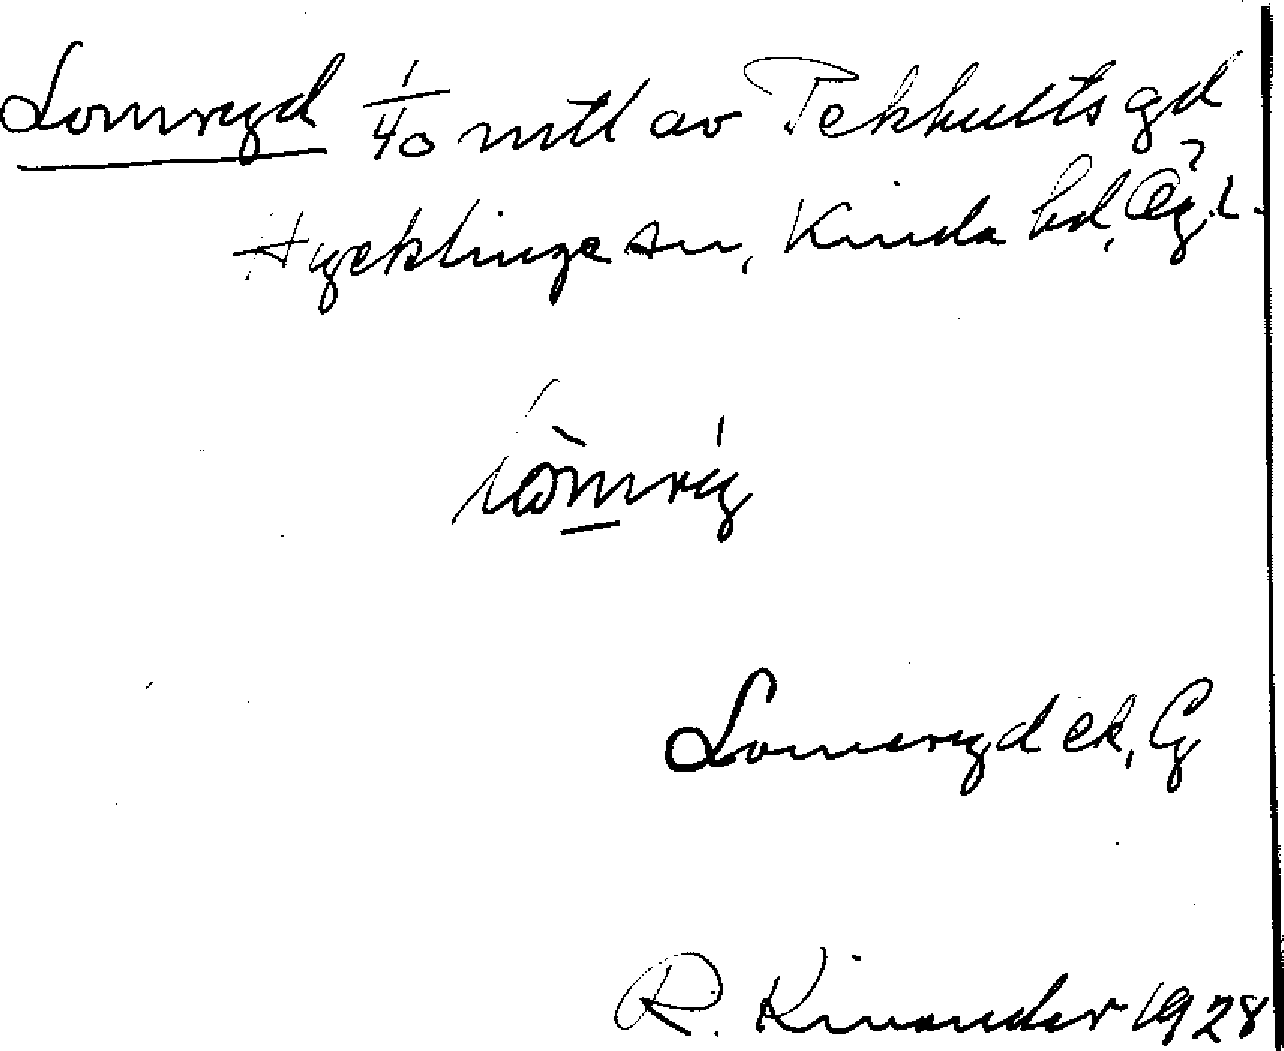 Lomryd 1/40 mtl av Tekhults gd
Hycklinge sn, Kinda hd, Ögl.
Lomryd ek, G
R. Kinander 1928